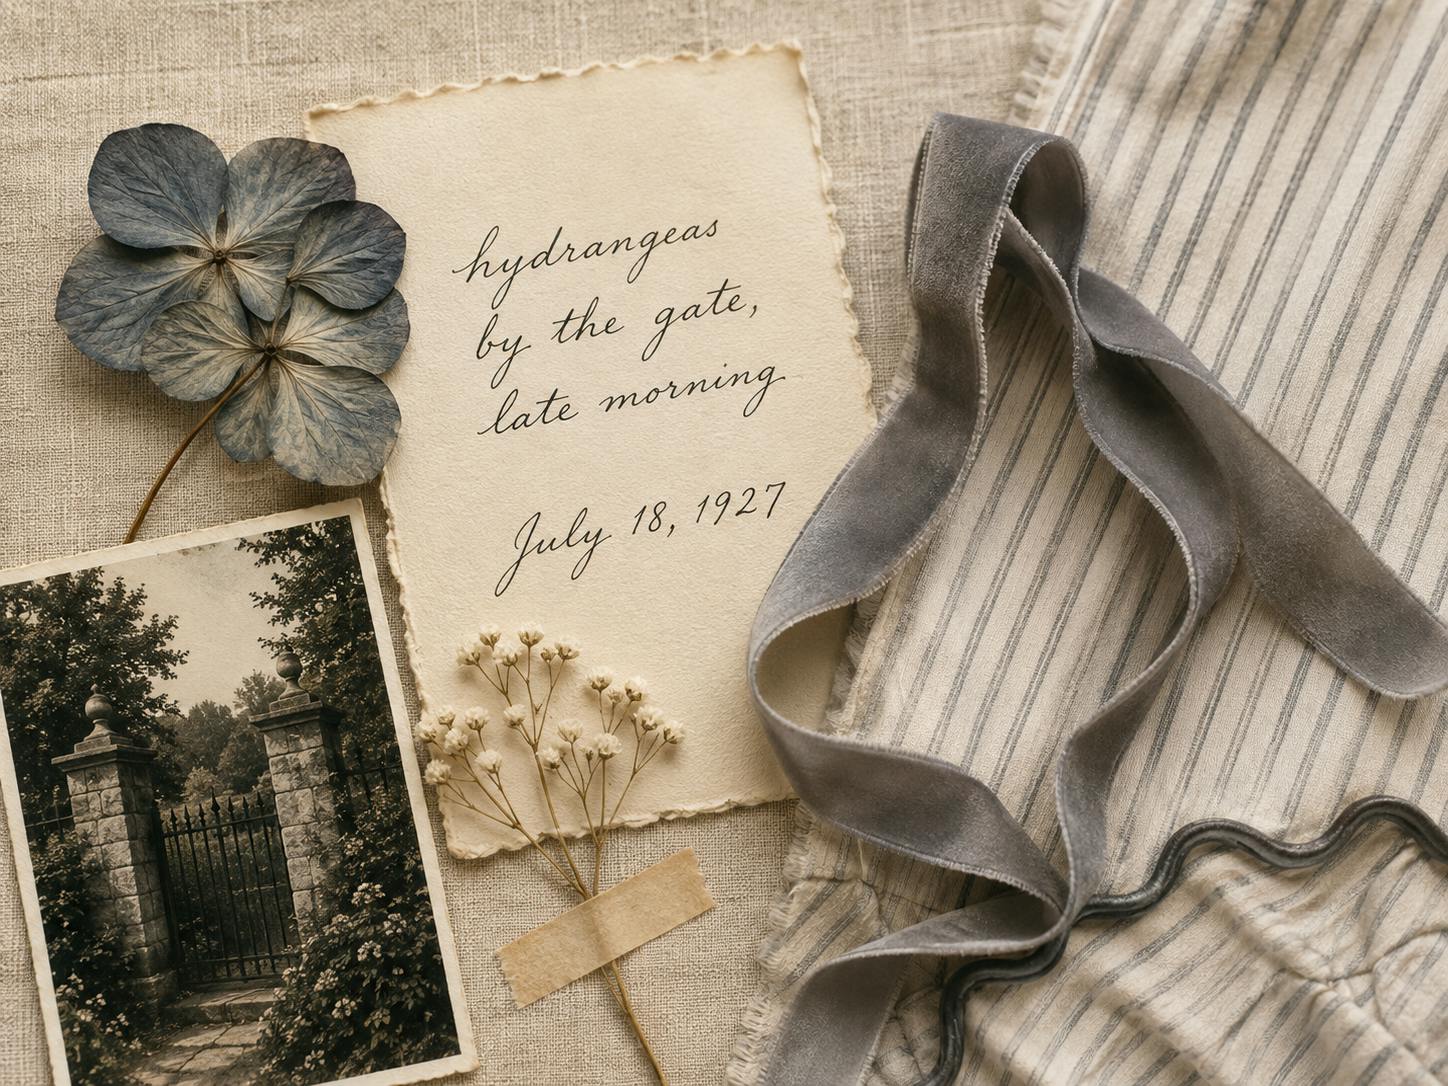 hydrangeas
by the gate,
late morning
July 18, 1927